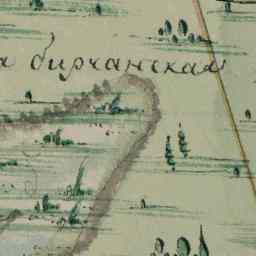 а бирчанская